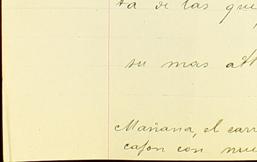 ta de las que
su mas at
Mañana, el carr
cajon con nue